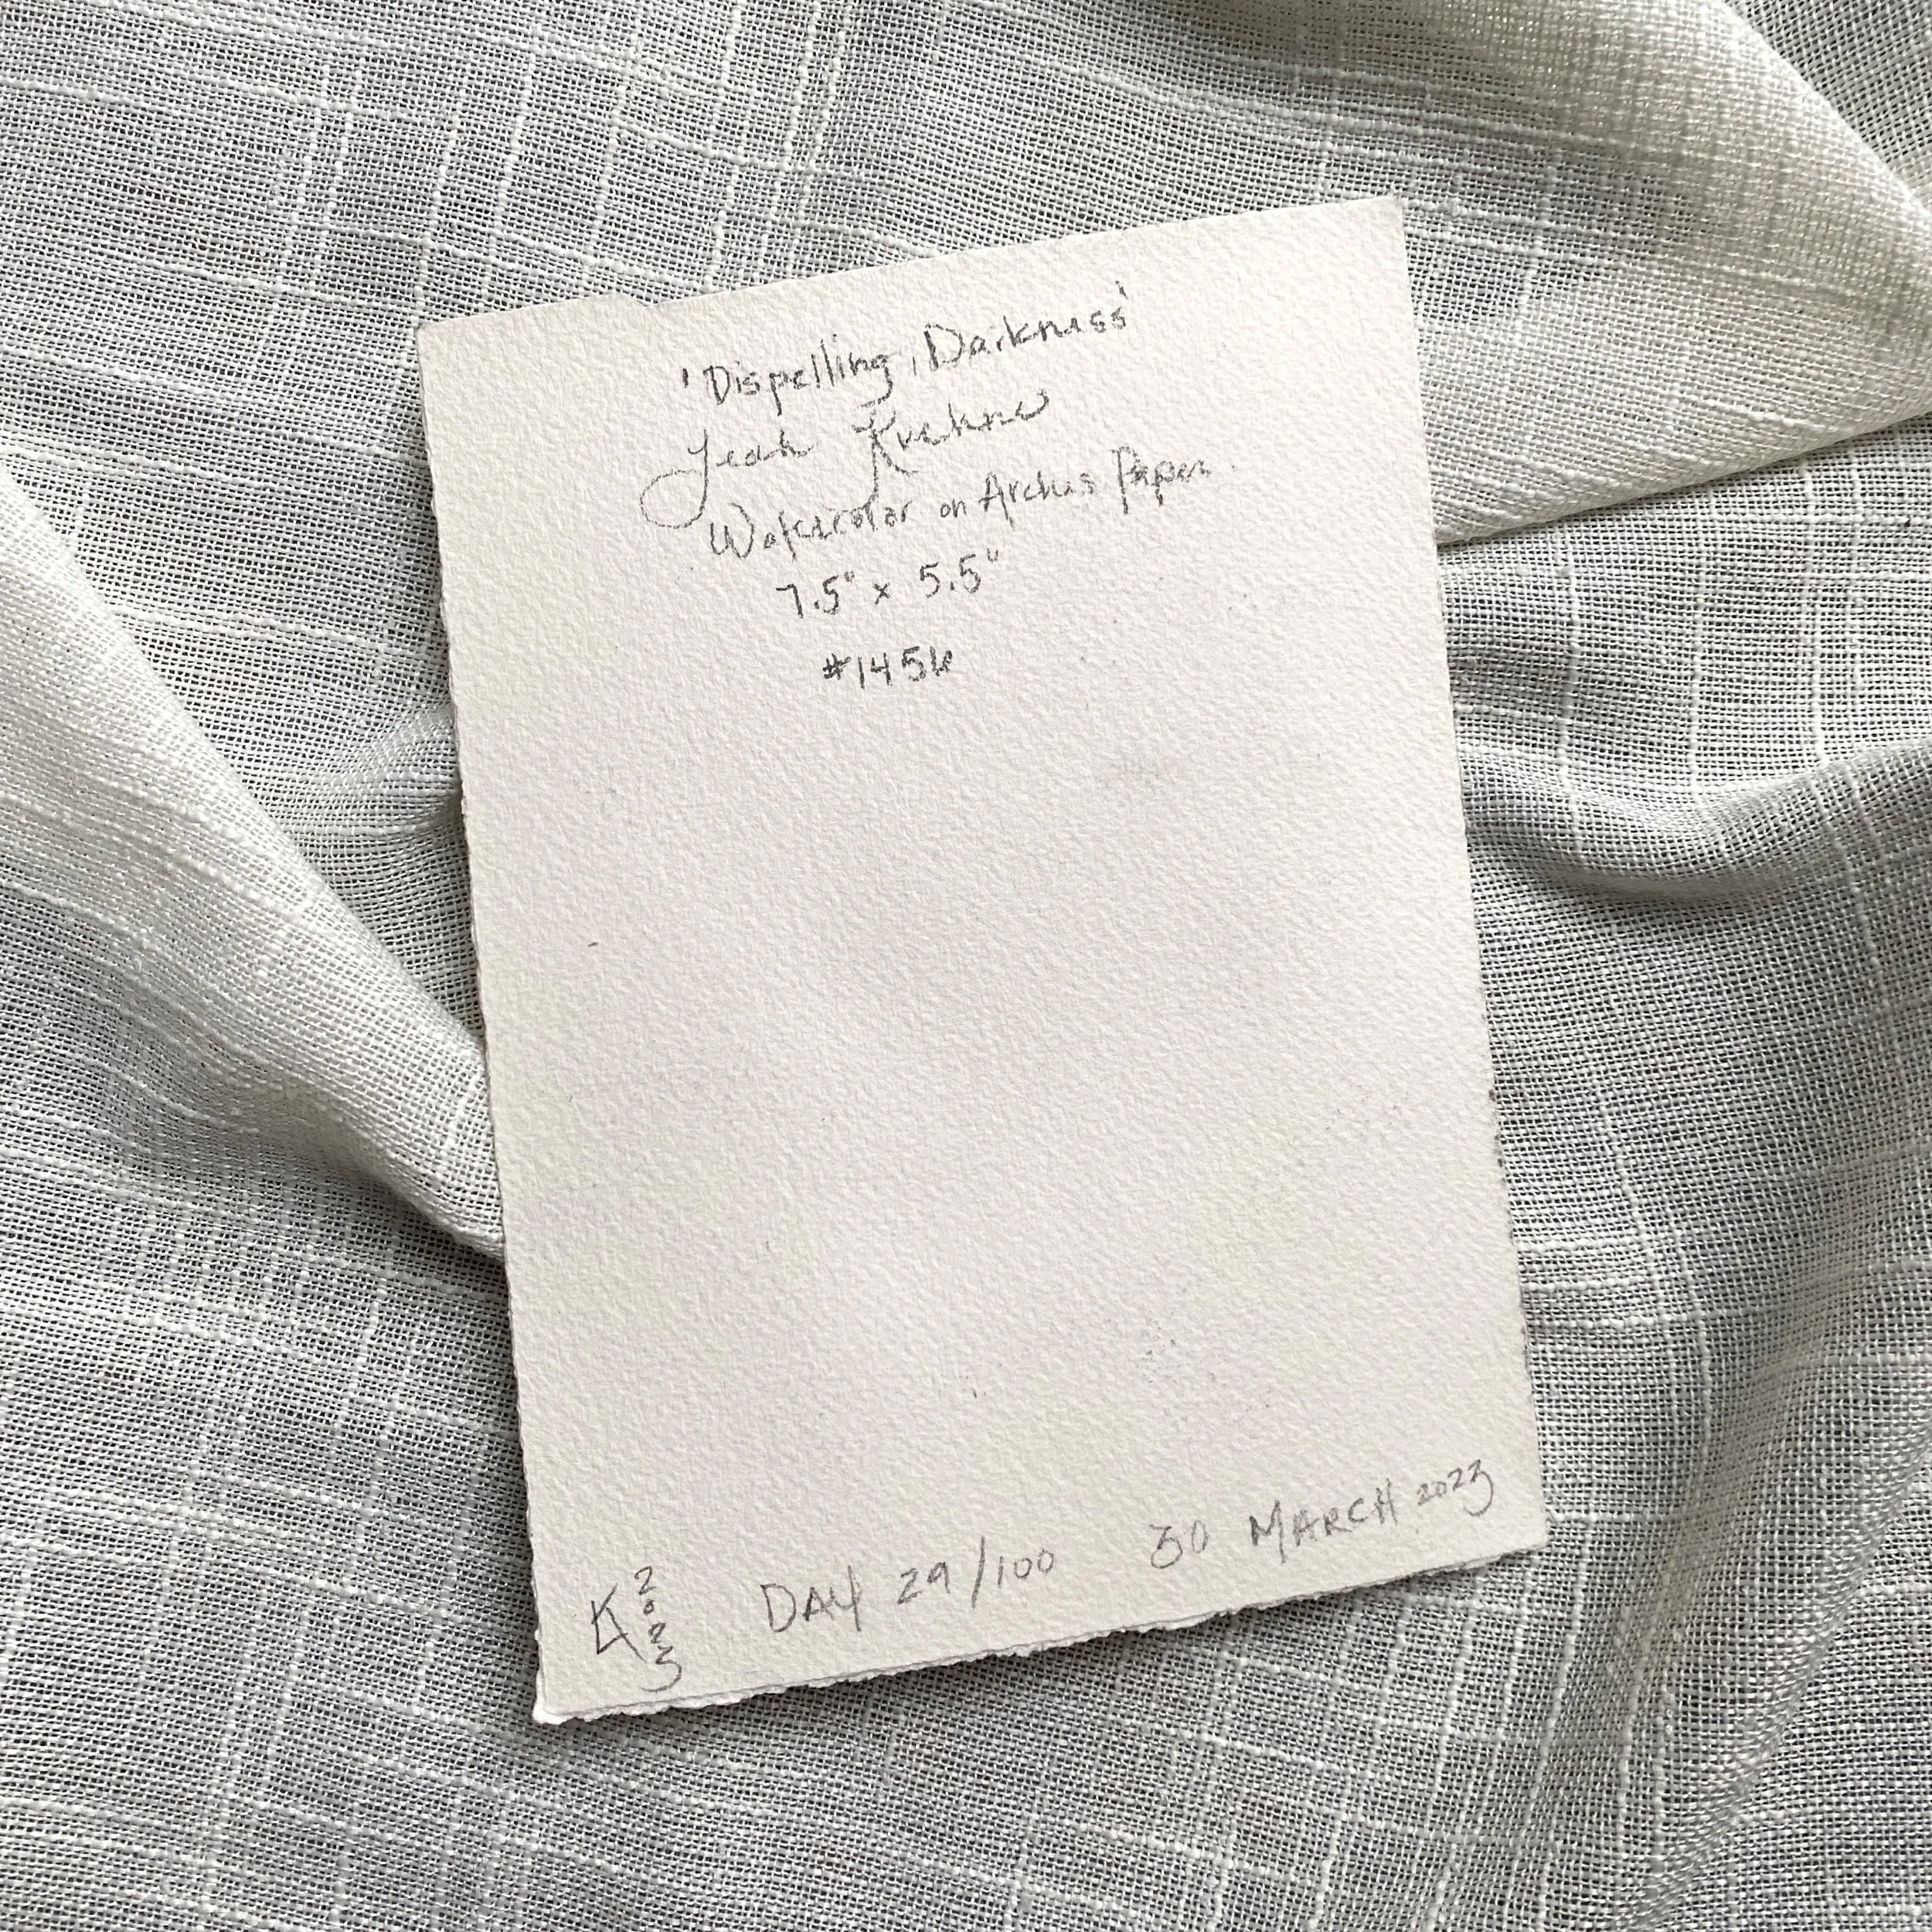 'Dispelling Darkness'
Leah Kuehne
Watercolor on Arches Paper.
7.5" x 5.5"
#1456
K 2023 DAY 29/100 30 MARCH 2023